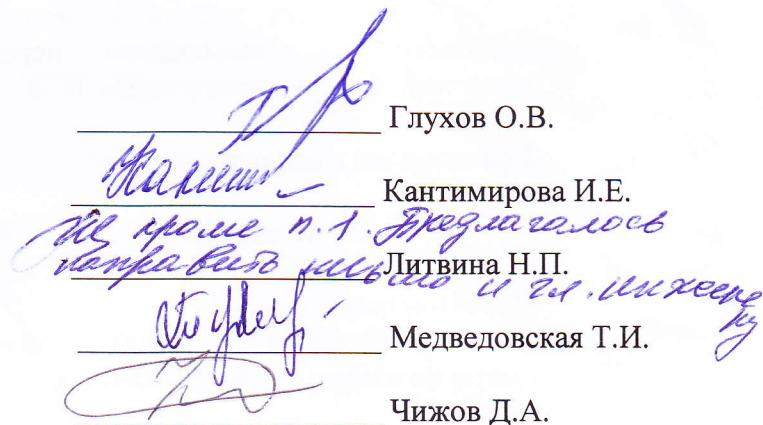 Глухов О.В.
Кантимирова И.Е.
кроме п.1. Предлагалось
направить письмо и гл. инженеру
Литвина Н.П.
Медведовская Т.И.
Чижов Д.А.